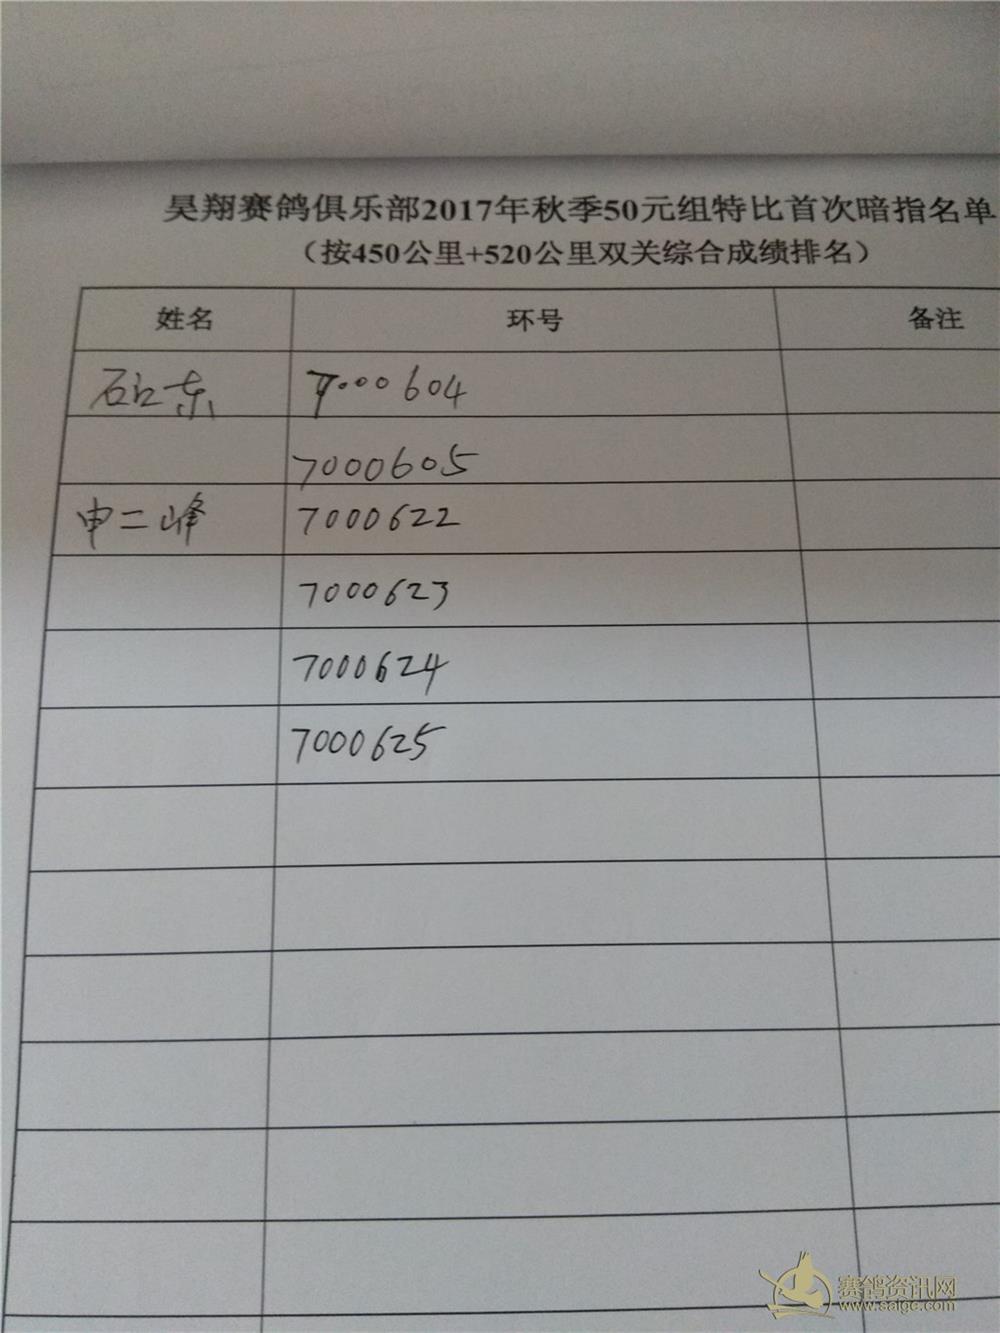 昊翔赛鸽俱乐部2017年秋季50元组特比首次暗指名单
（按450公里+520公里双关综合成绩排名）
姓名 环号 备注
7000604
7000605
申二峰 7000622
7000623
7000624
7000625
赛鸽资讯网
www.saige.com